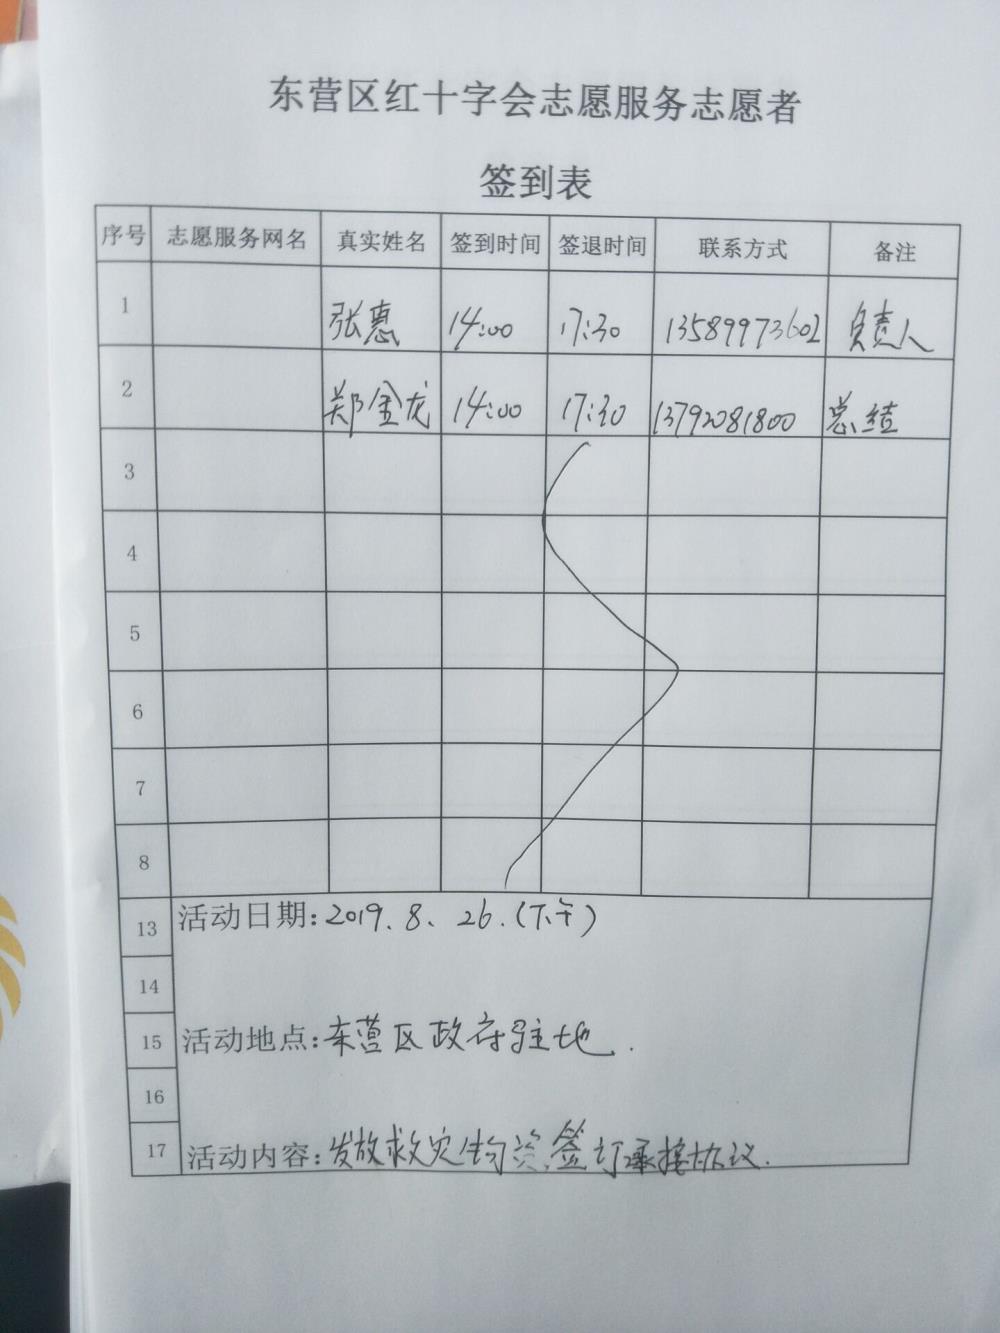 东营区红十字会志愿服务志愿者
签到表
序号 志愿服务网名 真实姓名 签到时间 签退时间 联系方式 备注
1 张惠 14:00 17:30 13589973602 负责人
2 郑金龙 14:00 17:30 13792081800 总结
3
4
5
6
7
8
13 活动日期:2019.8、26.(下午)
14
15 活动地点:东营区政府驻地.
16
17 活动内容:发放救灾物资签订承接协议.